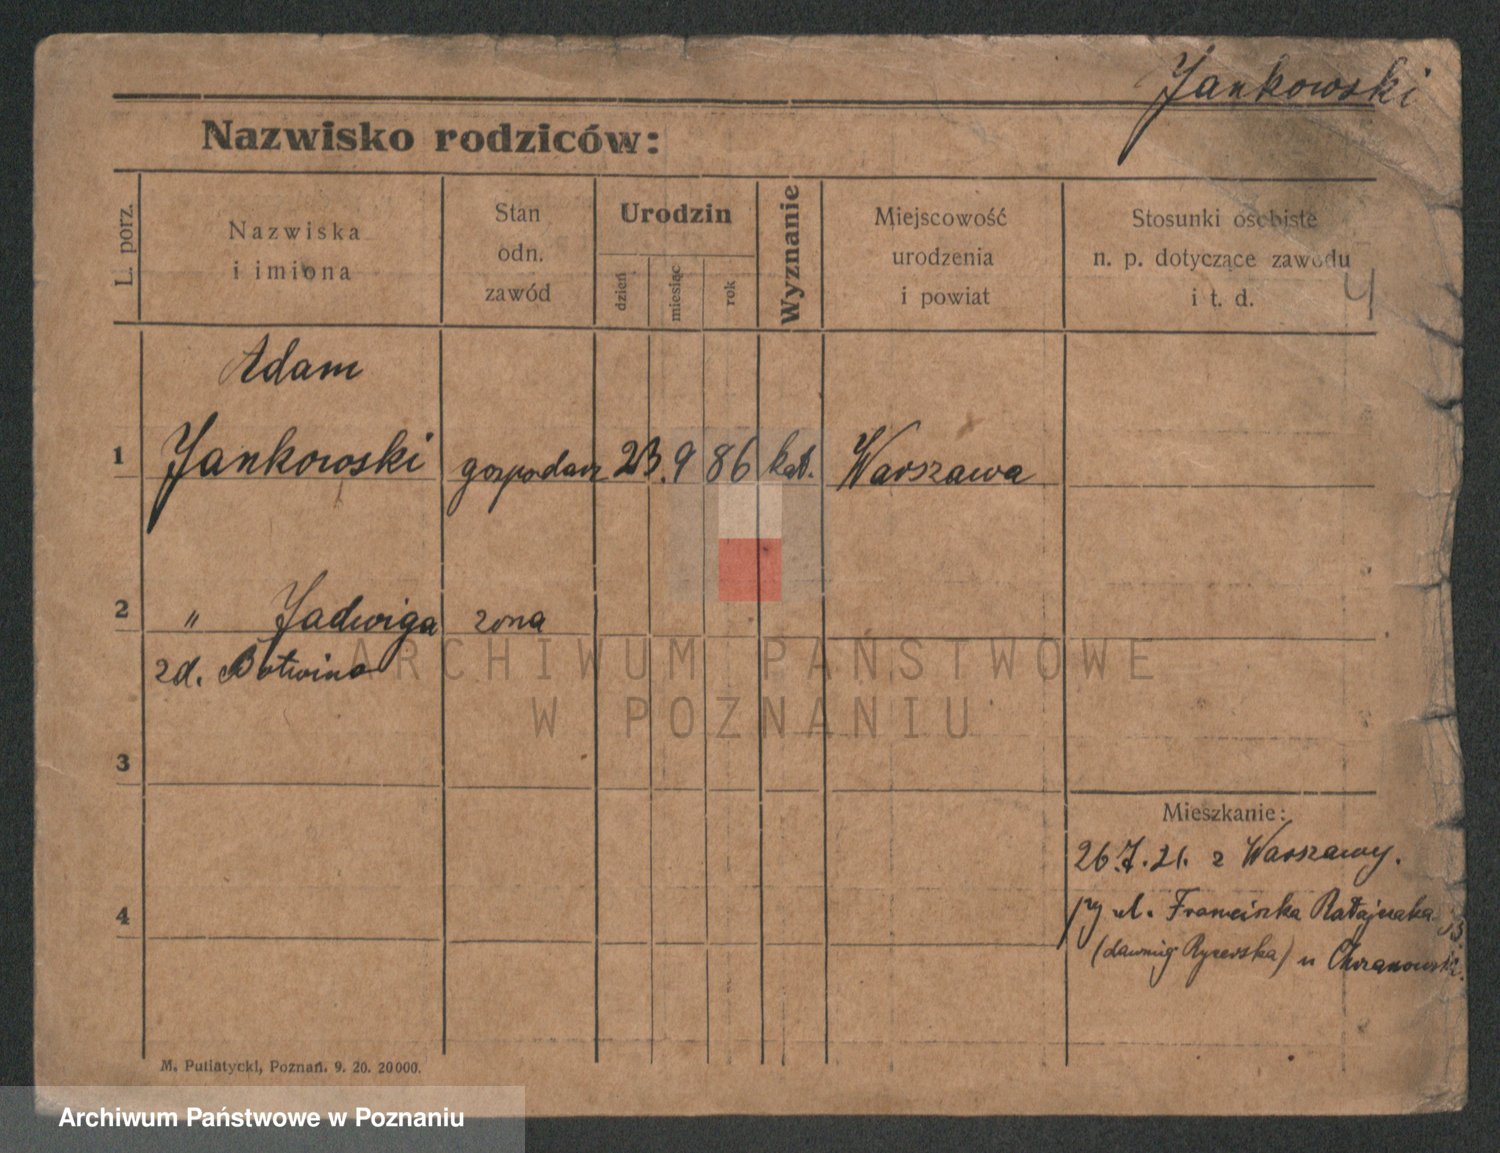 Jankowski
Nazwisko rodziców:
L. porz.
Nazwiska
i imiona
Stan
odn.
zawód
Urodzin
dzień
miesiąc
rok
Wyznanie
Miejscowość
urodzenia
i powiat
Stosunki osobiste
n. p. dotyczące zawodu
i t. d.
4
Adam
1 Jankowski gospodarz 23. 9 86 kat. Warszawa
2 " Jadwiga zona
zd. Botwino
ARCHIWUM PAŃSTWOWE
W POZNANIU
3
Mieszkanie:
26.7.21. z Warszawy.
4
py ul. Franciszka Ratajczaka
(dawniej Rycerska) u
M. Putiatycki, Poznań. 9. 20. 20000.
Archiwum Państwowe w Poznaniu